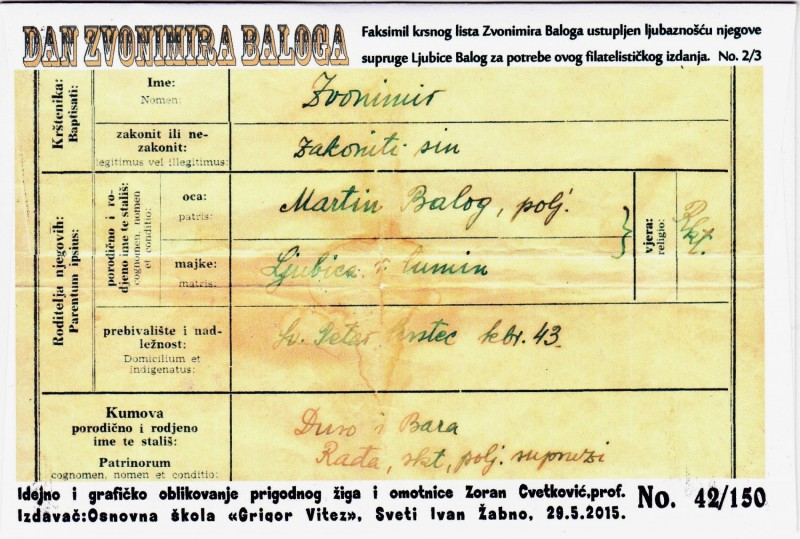 DAN ZVONIMIRA BALOGA
Faksimil krsnog lista Zvonimira Baloga ustupljen ljubaznošću njegove
supruge Ljubice Balog za potrebe ovog filatelističkog izdanja. No. 2/3
Krštenika:
Baptisati:
Ime:
Nomen:
Zvonimir
zakonit ili ne-
zakonit:
legitimus vel illegitimus:
zakoniti sin
Roditelja njegovih:
Parentum ipsius:
porodično i ro-
djeno ime te stališ:
cognomen, nomen
et conditio:
oca:
patris:
Martin Balog, polj.
majke:
matris:
Ljubica r. Cumin
vjera:
religio:
Rkt.
prebivalište i nad-
ležnost:
Domicilium et
indigenatus:
Sv. Petar kbr. 43
Kumova
porodično i rodjeno
ime te stališ:
Patrinorum
cognomen, nomen et conditio:
Duro i Bara
Rađa, rkt, polj. supruzi
Idejno i grafičko oblikovanje prigodnog žiga i omotnice Zoran Cvetković,prof.
Izdavač:Osnovna škola «Grigor Vitez», Sveti Ivan Žabno, 29.5.2015.
No. 42/150